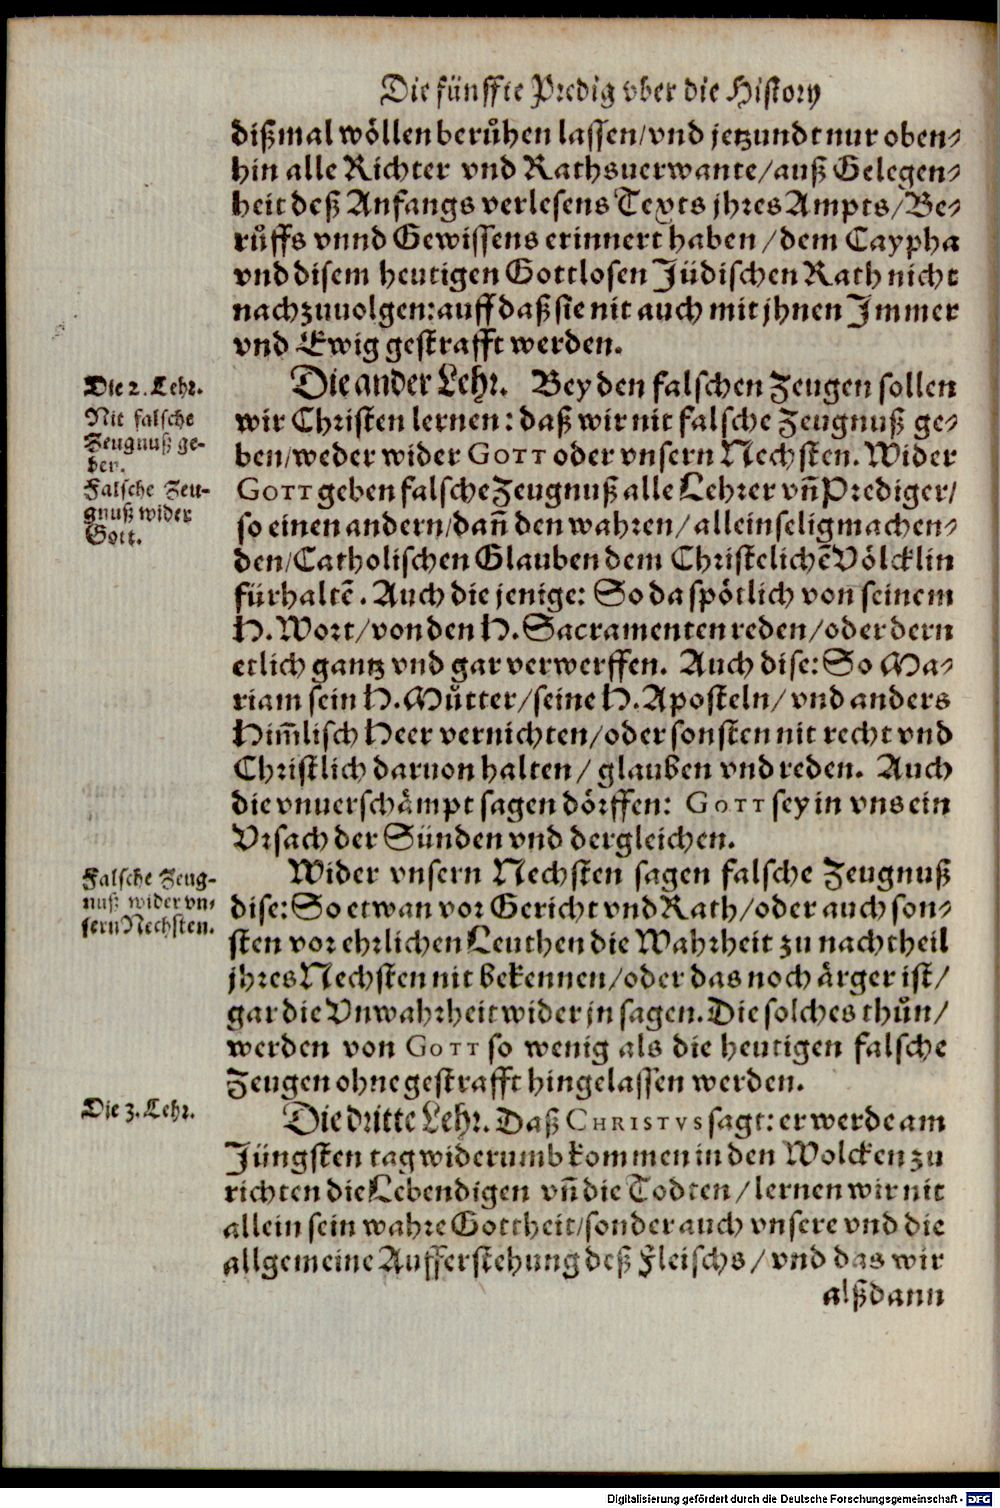 Die fünffte Predig vber die History
dißmal wöllen berůhen lassen/vnd jetzundt nur oben-
hin alle Richter vnd Rathsuerwante/auß Gelegen-
heit deß Anfangs verlesens Texts jhres Ampts/Be-
růffs vnnd Gewissens erinnert haben/dem Caypha
vnd disem heutigen Gottlosen Jüdischen Rath nicht
nachzuuolgen: auff daß sie nit auch mit jhnen Immer
vnd Ewig gestrafft werden.
Die 2. Lehr.
Nit falsche
Zeugnuß ge-
ben.
Falsche Zeu-
gnuß wider
Gott.
Die ander Lehr. Bey den falschen Zeugen sollen
wir Christen lernen: daß wir nit falsche Zeugnuß ge-
ben/weder wider GOTT oder vnsern Nechsten. Wider
GOTT geben falsche Zeugnuß alle Lehrer vñ Prediger/
so einen andern/dañ den wahren/alleinseligmachen-
den/Catholischen Glauben dem Christelichẽ Völcklin
fürhaltẽ. Auch die jenige: So da spötlich von seinem
H. Wort/von den H. Sacramenten reden/oder dern
etlich gantz vnd gar verwerffen. Auch dise: So Ma-
riam sein H. Můtter/seine H. Aposteln/vnd anders
Him̃lisch Heer vernichten/oder sonsten nit recht vnd
Christlich daruon halten/glauben vnd reden. Auch
die vnuerschämpt sagen dörffen: GOTT sey in vns ein
Vrsach der Sünden vnd dergleichen.
Falsche Zeug-
nuß wider vn-
sern Nechsten.
Wider vnsern Nechsten sagen falsche Zeugnuß
dise: So etwan vor Gericht vnd Rath/oder auch son-
sten vor ehrlichen Leuthen die Wahrheit zu nachtheil
jhres Nechsten nit bekennen/oder das noch ärger ist/
gar die Vnwahrheit wider jn sagen. Die solches thůn/
werden von GOTT so wenig als die heutigen falsche
Zeugen ohne gestrafft hingelassen werden.
Die 3. Lehr.
Die dritte Lehr. Daß CHRISTVS sagt: er werde am
Jüngsten tag widerumb kommen in den Wolcken zu
richten die Lebendigen vñ die Todten/lernen wir nit
allein sein wahre Gottheit/sonder auch vnsere vnd die
allgemeine Aufferstehung deß Fleischs/vnd das wir
alßdann
Digitalisierung gefördert durch die Deutsche Forschungsgemeinschaft - DFG